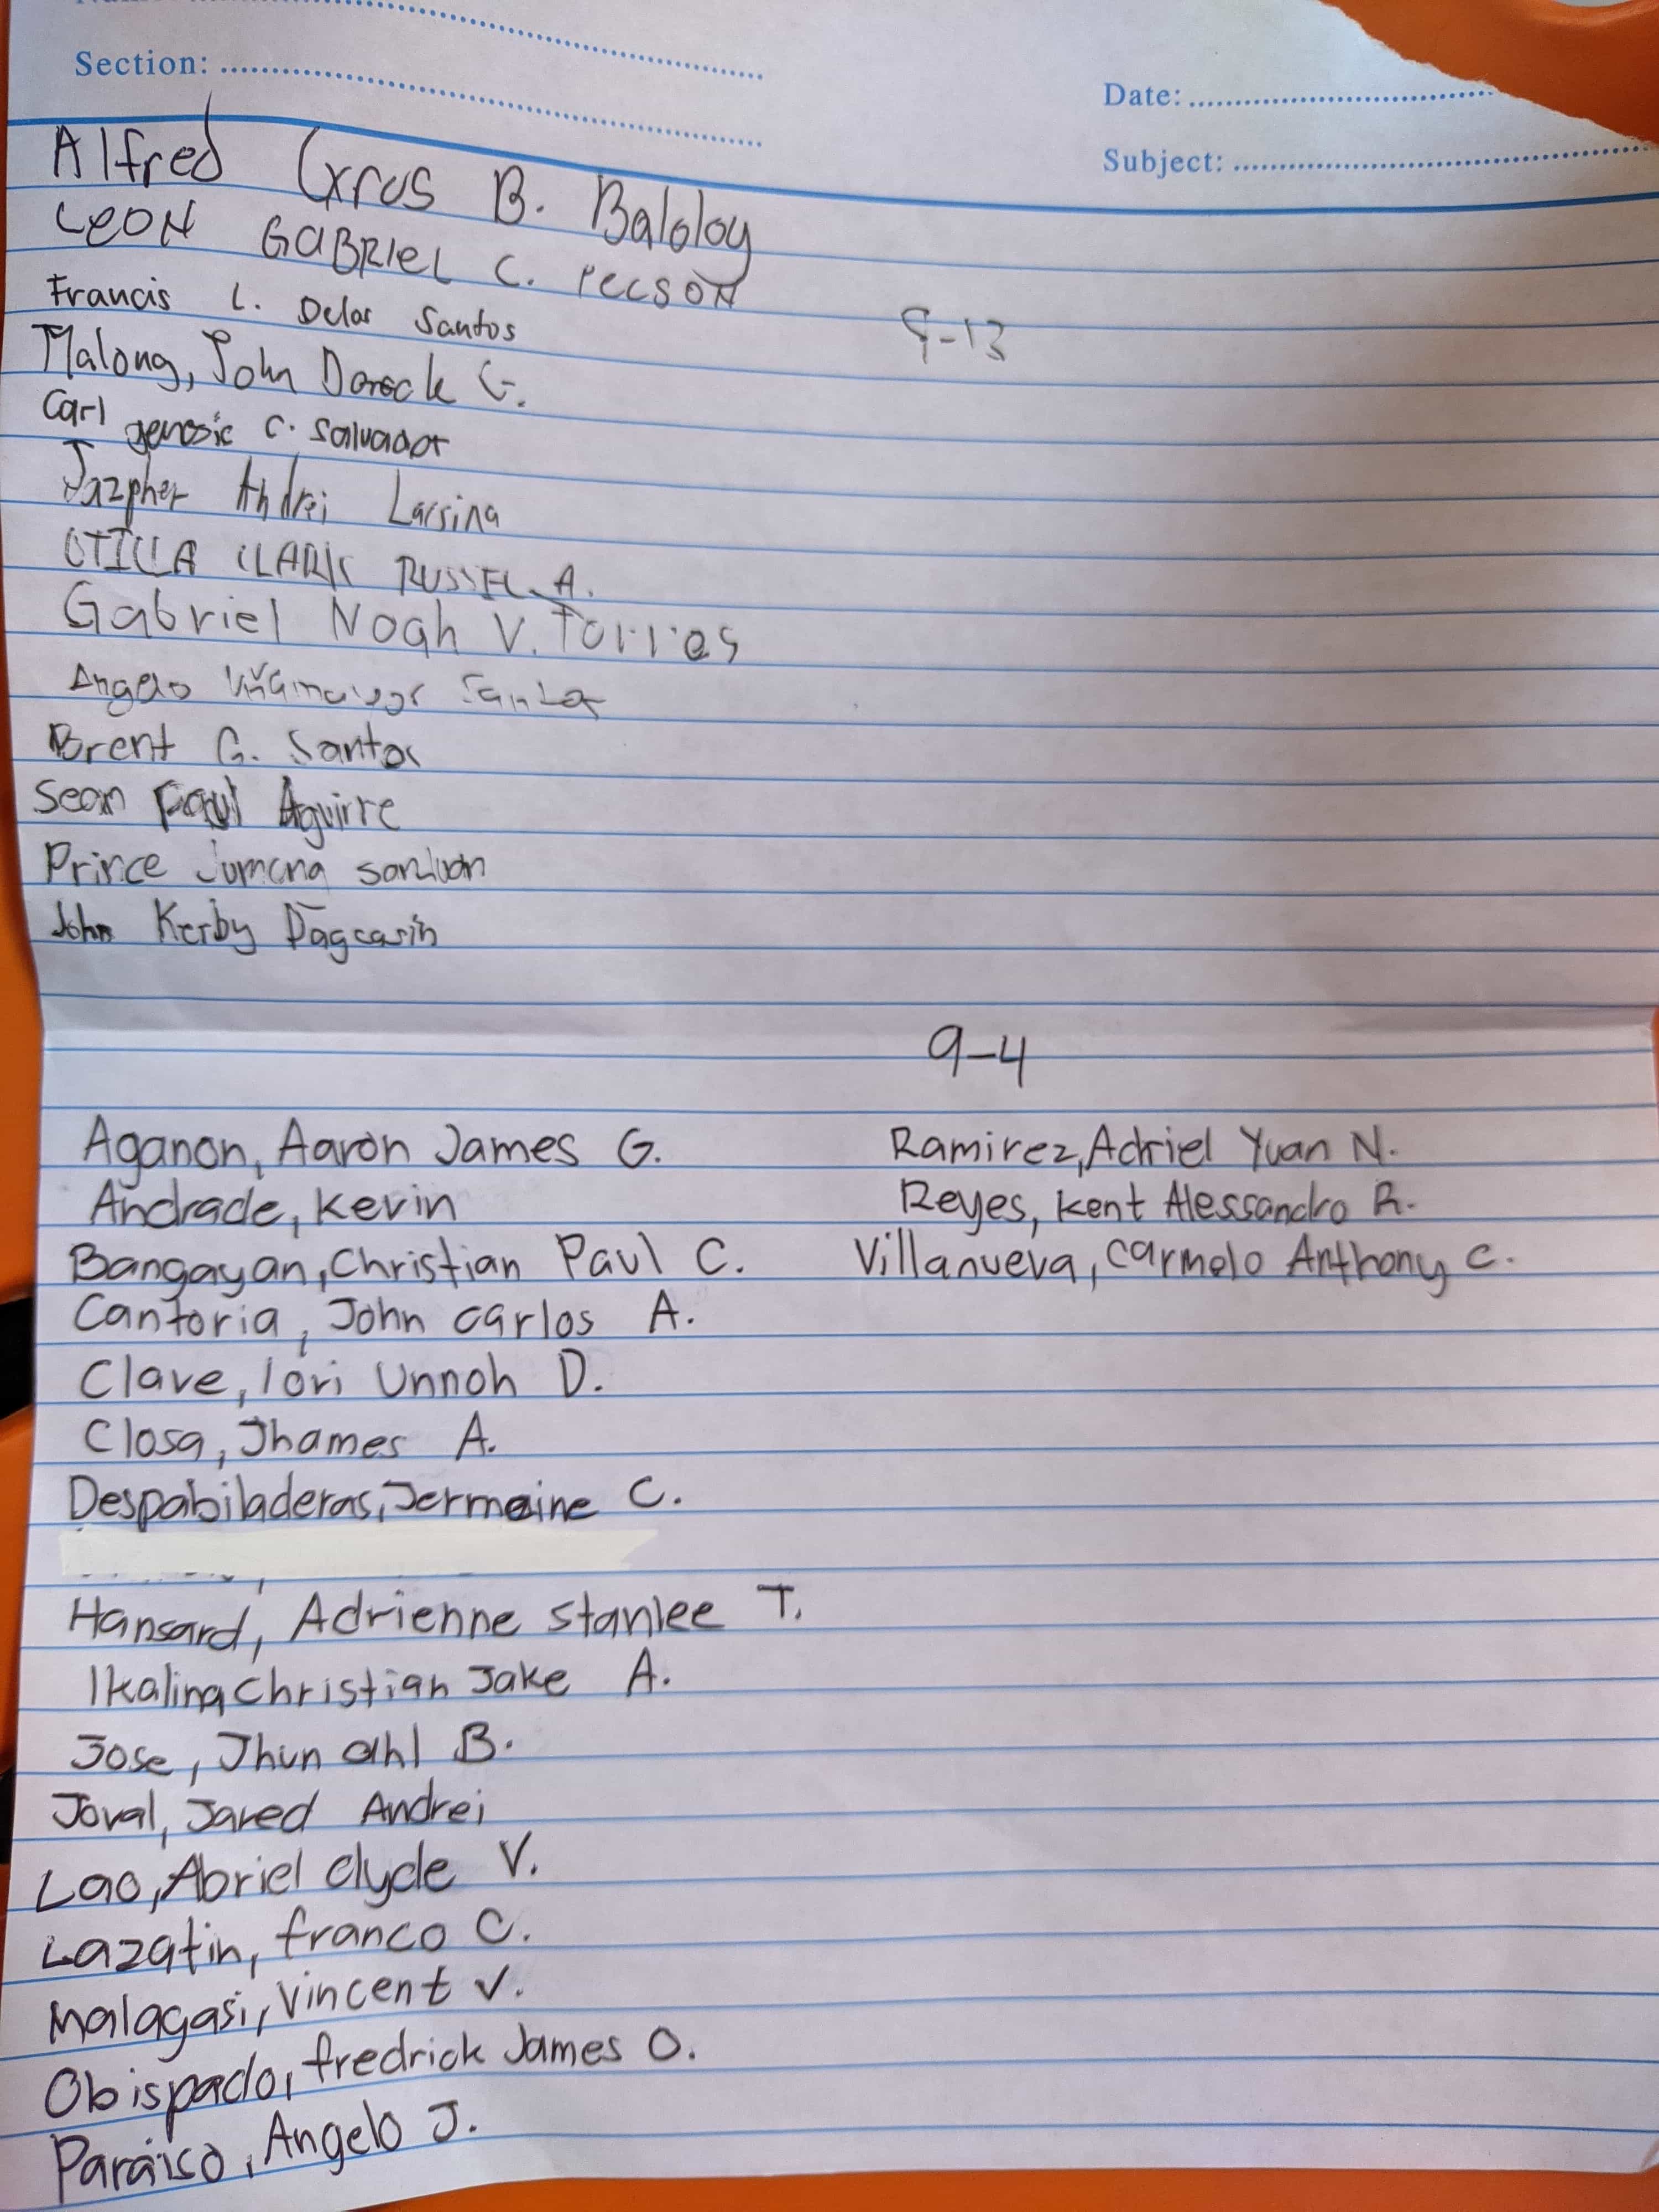 Section:
Date:
Subject:
Alfred Cyrus B. Baloloy
LEON GABRIEL C. PECSON
Francis L. Delos Santos
9-13
Malong, John Dareck G.
Carl C. Salvador
Jazpher Andrei Larsina
RUSSEL A.
Gabriel Noah V. Torres
Angelo
Brent G. Santos
Sean Paul Aguirre
Prince
John Kerby Dagcasin
9-4
Aganon, Aaron James G.
Andrade, Kevin
Bangayan, Christian Paul C.
Cantoria, John carlos A.
Clave, Iori Unnoh D.
Closa, Jhames A.
Despabiladeras, Jermaine C.
Hansard, Adrienne stanlee T.
Ikaling Christian Jake A.
Jose, Jhun ahl B.
Joval, Jared Andrei
Lao, Abriel Clyde V.
Lazatin, franco C.
Malagasi, Vincent V.
Obispado, fredrick James O.
Paraiso, Angelo J.
Ramirez, Adriel Yuan N.
Reyes, Kent Alessandro R.
Villanueva, Carmelo Anthony C.